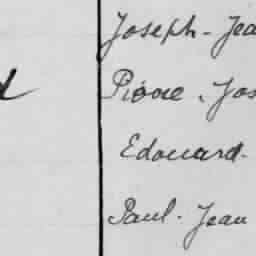 Joseph - Jea
Pierre . Jos
Edouard.
Paul. Jean